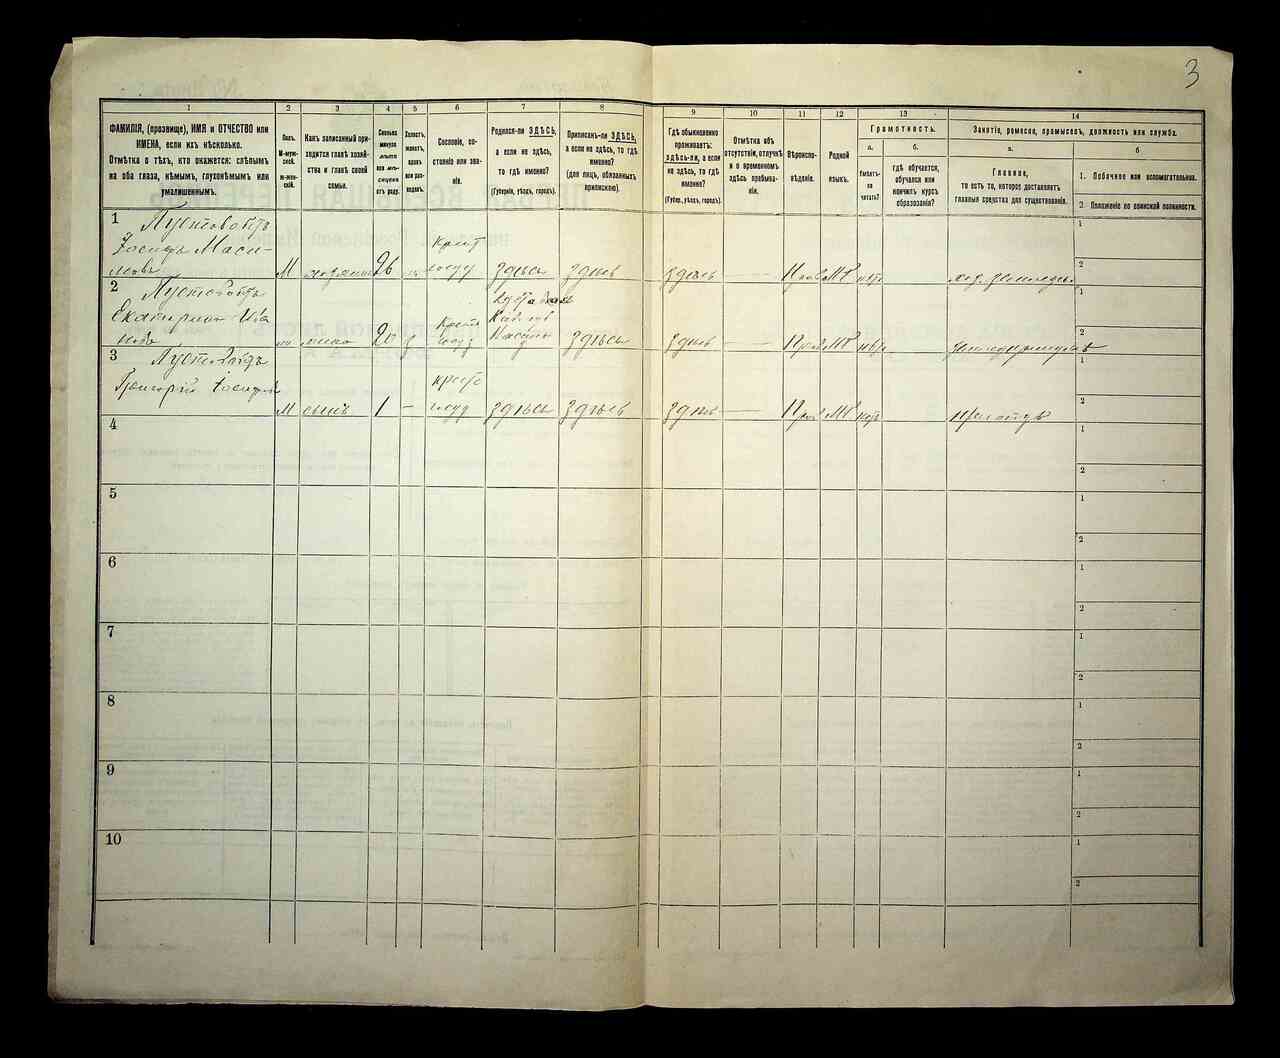 3
1 2 3 4 5 6 7 8 9 10 11 12 13 14
ФАМИЛІЯ, (прозвище), ИМЯ и ОТЧЕСТВО или
ИМЕНА, если ихъ нѣсколько.
Отмѣтка о тѣхъ, кто окажется: слѣпымъ
на оба глаза, нѣмымъ, глухонѣмымъ или
умалишеннымъ.
Полъ.
М-муж-
ской.
ж-жен-
скій.
Какъ записанный при-
ходится главѣ хозяй-
ства и главѣ своей
семьи.
Сколько
минуло
лѣтъ
или мѣ-
сяцевъ
отъ роду.
Холостъ,
женатъ,
вдовъ
или раз-
веденъ.
Сословіе, со-
стояніе или зва-
ніе.
Родился-ли ЗДѢСЬ,
а если не здѣсь,
то гдѣ именно?
(Губернія, уѣздъ, городъ).
Приписанъ-ли ЗДѢСЬ,
а если не здѣсь, то гдѣ
именно?
(для лицъ, обязанныхъ
припискою).
Гдѣ обыкновенно
проживаетъ:
здѣсь-ли, а если
не здѣсь, то гдѣ
именно?
(Губер., уѣздъ, городъ).
Отмѣтка объ
отсутствіи, отлучкѣ
и о временномъ
здѣсь пребыва-
ніи.
Вѣроиспо-
вѣданіе.
Родной
языкъ.
Грамотность.
а.
Умѣетъ-
ли
читать?
б.
гдѣ обучается,
обучался или
кончилъ курсъ
образованія?
Занятіе, ремесло, промыселъ, должность или служба.
а.
Главное,
то есть то, которое доставляетъ
главныя средства для существованія.
б
1. Побочное или вспомогательное.
2. Положеніе по воинской повинности.
1
Іосифъ Макси-
мовъ М хозяинъ 26 крест госуд здѣсь здѣсь здѣсь Прав МР нѣтъ
1
2
2
Екатерина Ива
жена 20 крест госуд здѣсь здѣсь Прав МР нѣтъ
1
2
3
Григорій Іосифовъ
М сынъ 1 — крест госуд здѣсь здѣсь здѣсь Прав МР нѣтъ при отцѣ
1
2
4
1
2
5
1
2
6
1
2
7
1
2
8
1
2
9
1
2
10
1
2